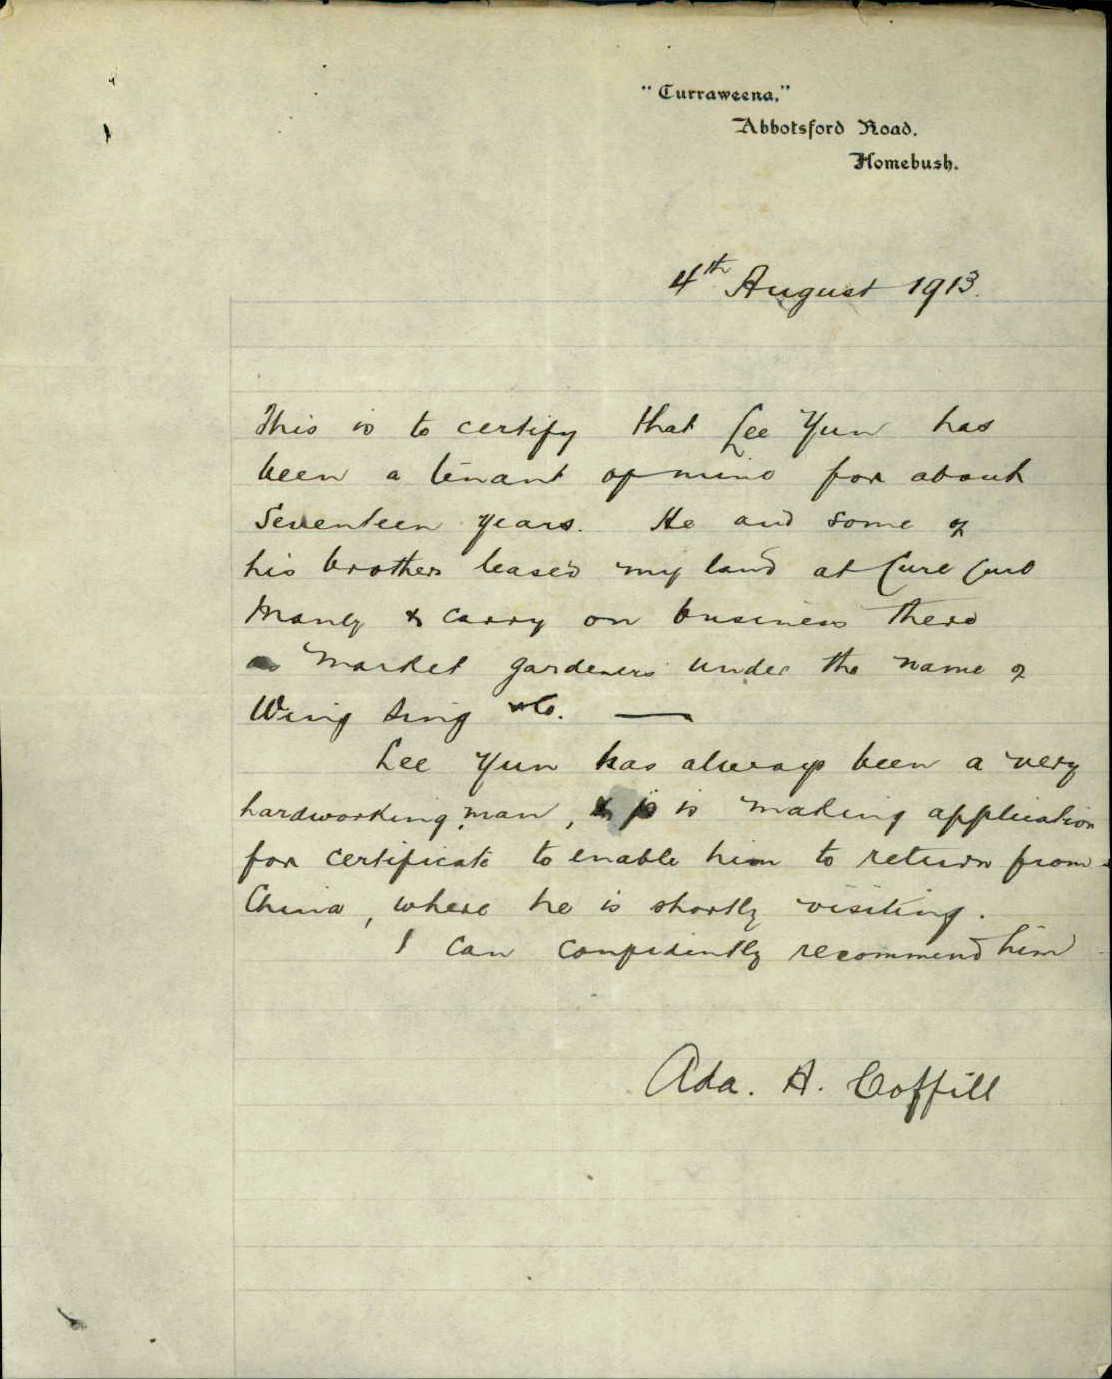 "Curraweena."
Abbotsford Road.
Homebush.
4th August 1913.
This is to certify that Lee Yun has
been a tenant of mine for about
Seventeen years. He and some of
his brothers leased my land at Curl Curl
Manly & carry on business there
as market gardeners under the name of
Wing Sing & Co. —
Lee Yun has always been a very
hardworking man, & is making application
for certificate to enable him to return from
China, where he is shortly visiting.
I can confidently recommend him
Ada. A. Coffill